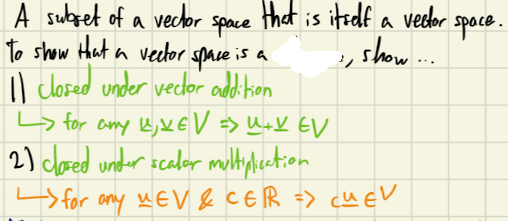 A subset of a vector space that is itself a vector space.
To show that a vector space is a , show ...
1) closed under vector addition
↳ for any u, v ∈ V ⇒ u + v ∈ V
2) closed under scalar multiplication
↳ for any u ∈ V & c ∈ ℝ ⇒ cu ∈ V